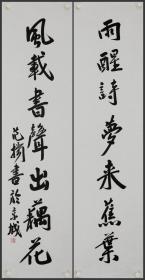 雨醒詩夢来蕉葉
風載書聲出藕花
范撫書於京城